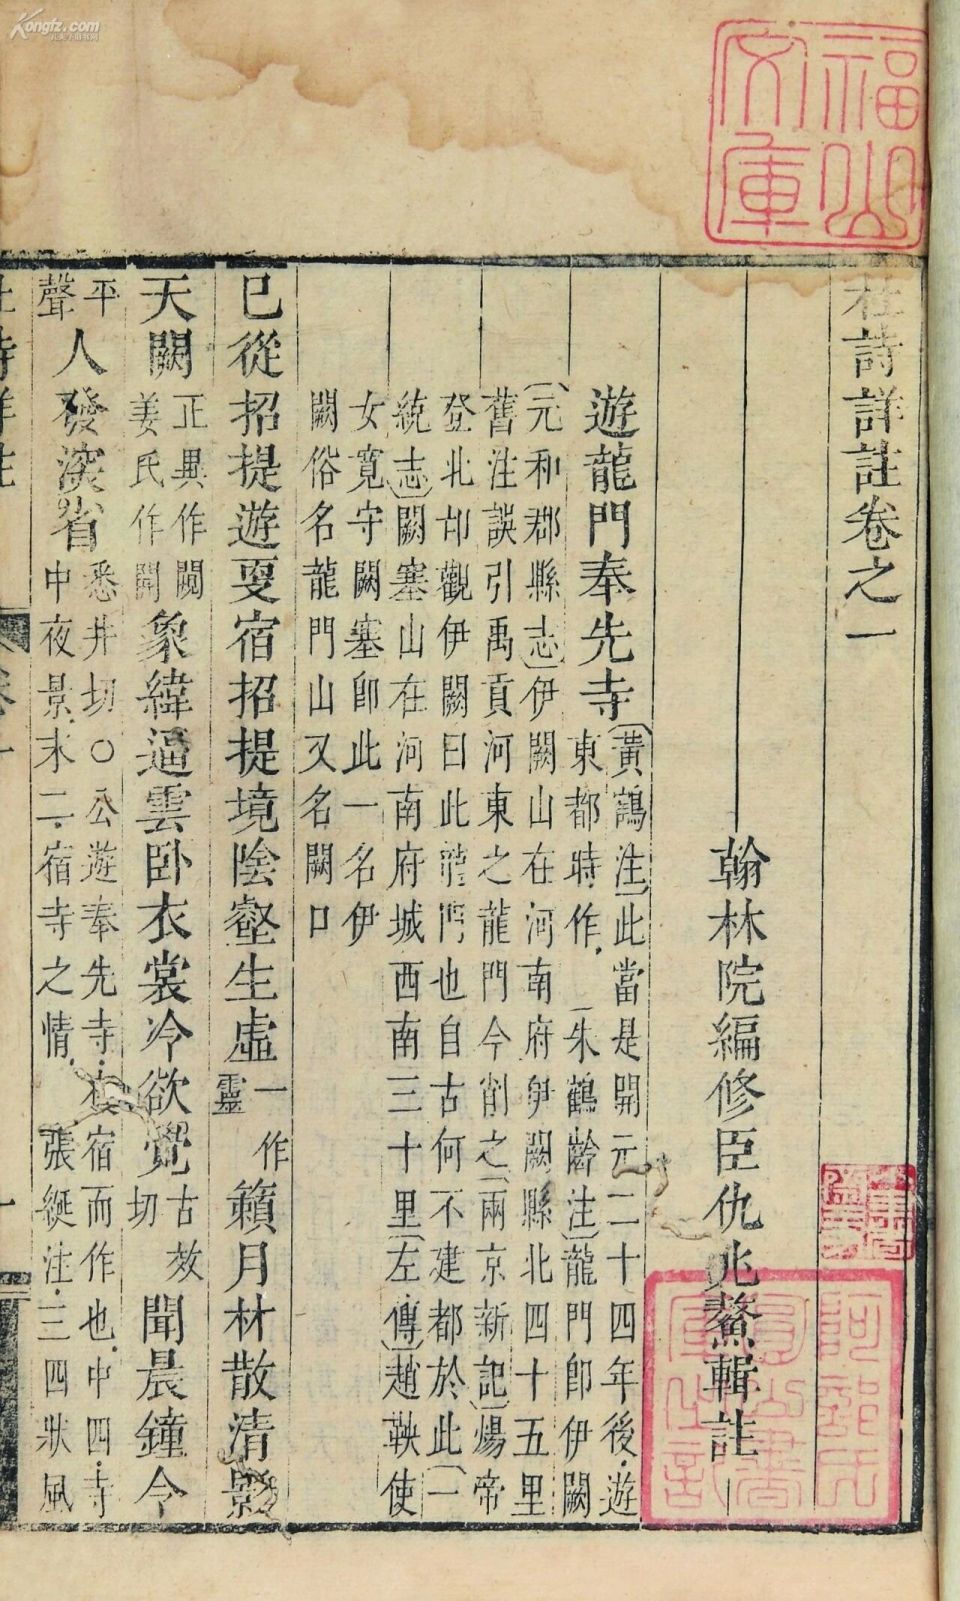 Kongfz.com
福山文庫
杜詩詳註卷之一
翰林院編修臣仇兆鰲輯註
遊龍門奉先寺〔黃鶴注〕此當是開元二十四年後遊
東都時作〔朱鶴齡注〕龍門即伊闕
〔元和郡縣志〕伊闕山在河南府伊闕縣北四十五里
舊注誤引禹貢河東之龍門今削之〔兩京新記〕煬帝
登北邙觀伊闕曰此龍門也自古何不建都於此〔一
統志〕闕塞山在河南府城西南三十里〔左傳〕趙鞅使
女寬守闕塞即此一名伊
闕俗名龍門山又名闕口
已從招提遊更宿招提境陰壑生虛一作靈籟月林散清影
天闕正異作閱姜氏作開象緯逼雲卧衣裳冷欲覺古效切聞晨鐘令
平聲人發深省悉井切〇公遊奉先寺夜宿而作也中四寺
中夜景末二宿寺之情張綖注三四狀風